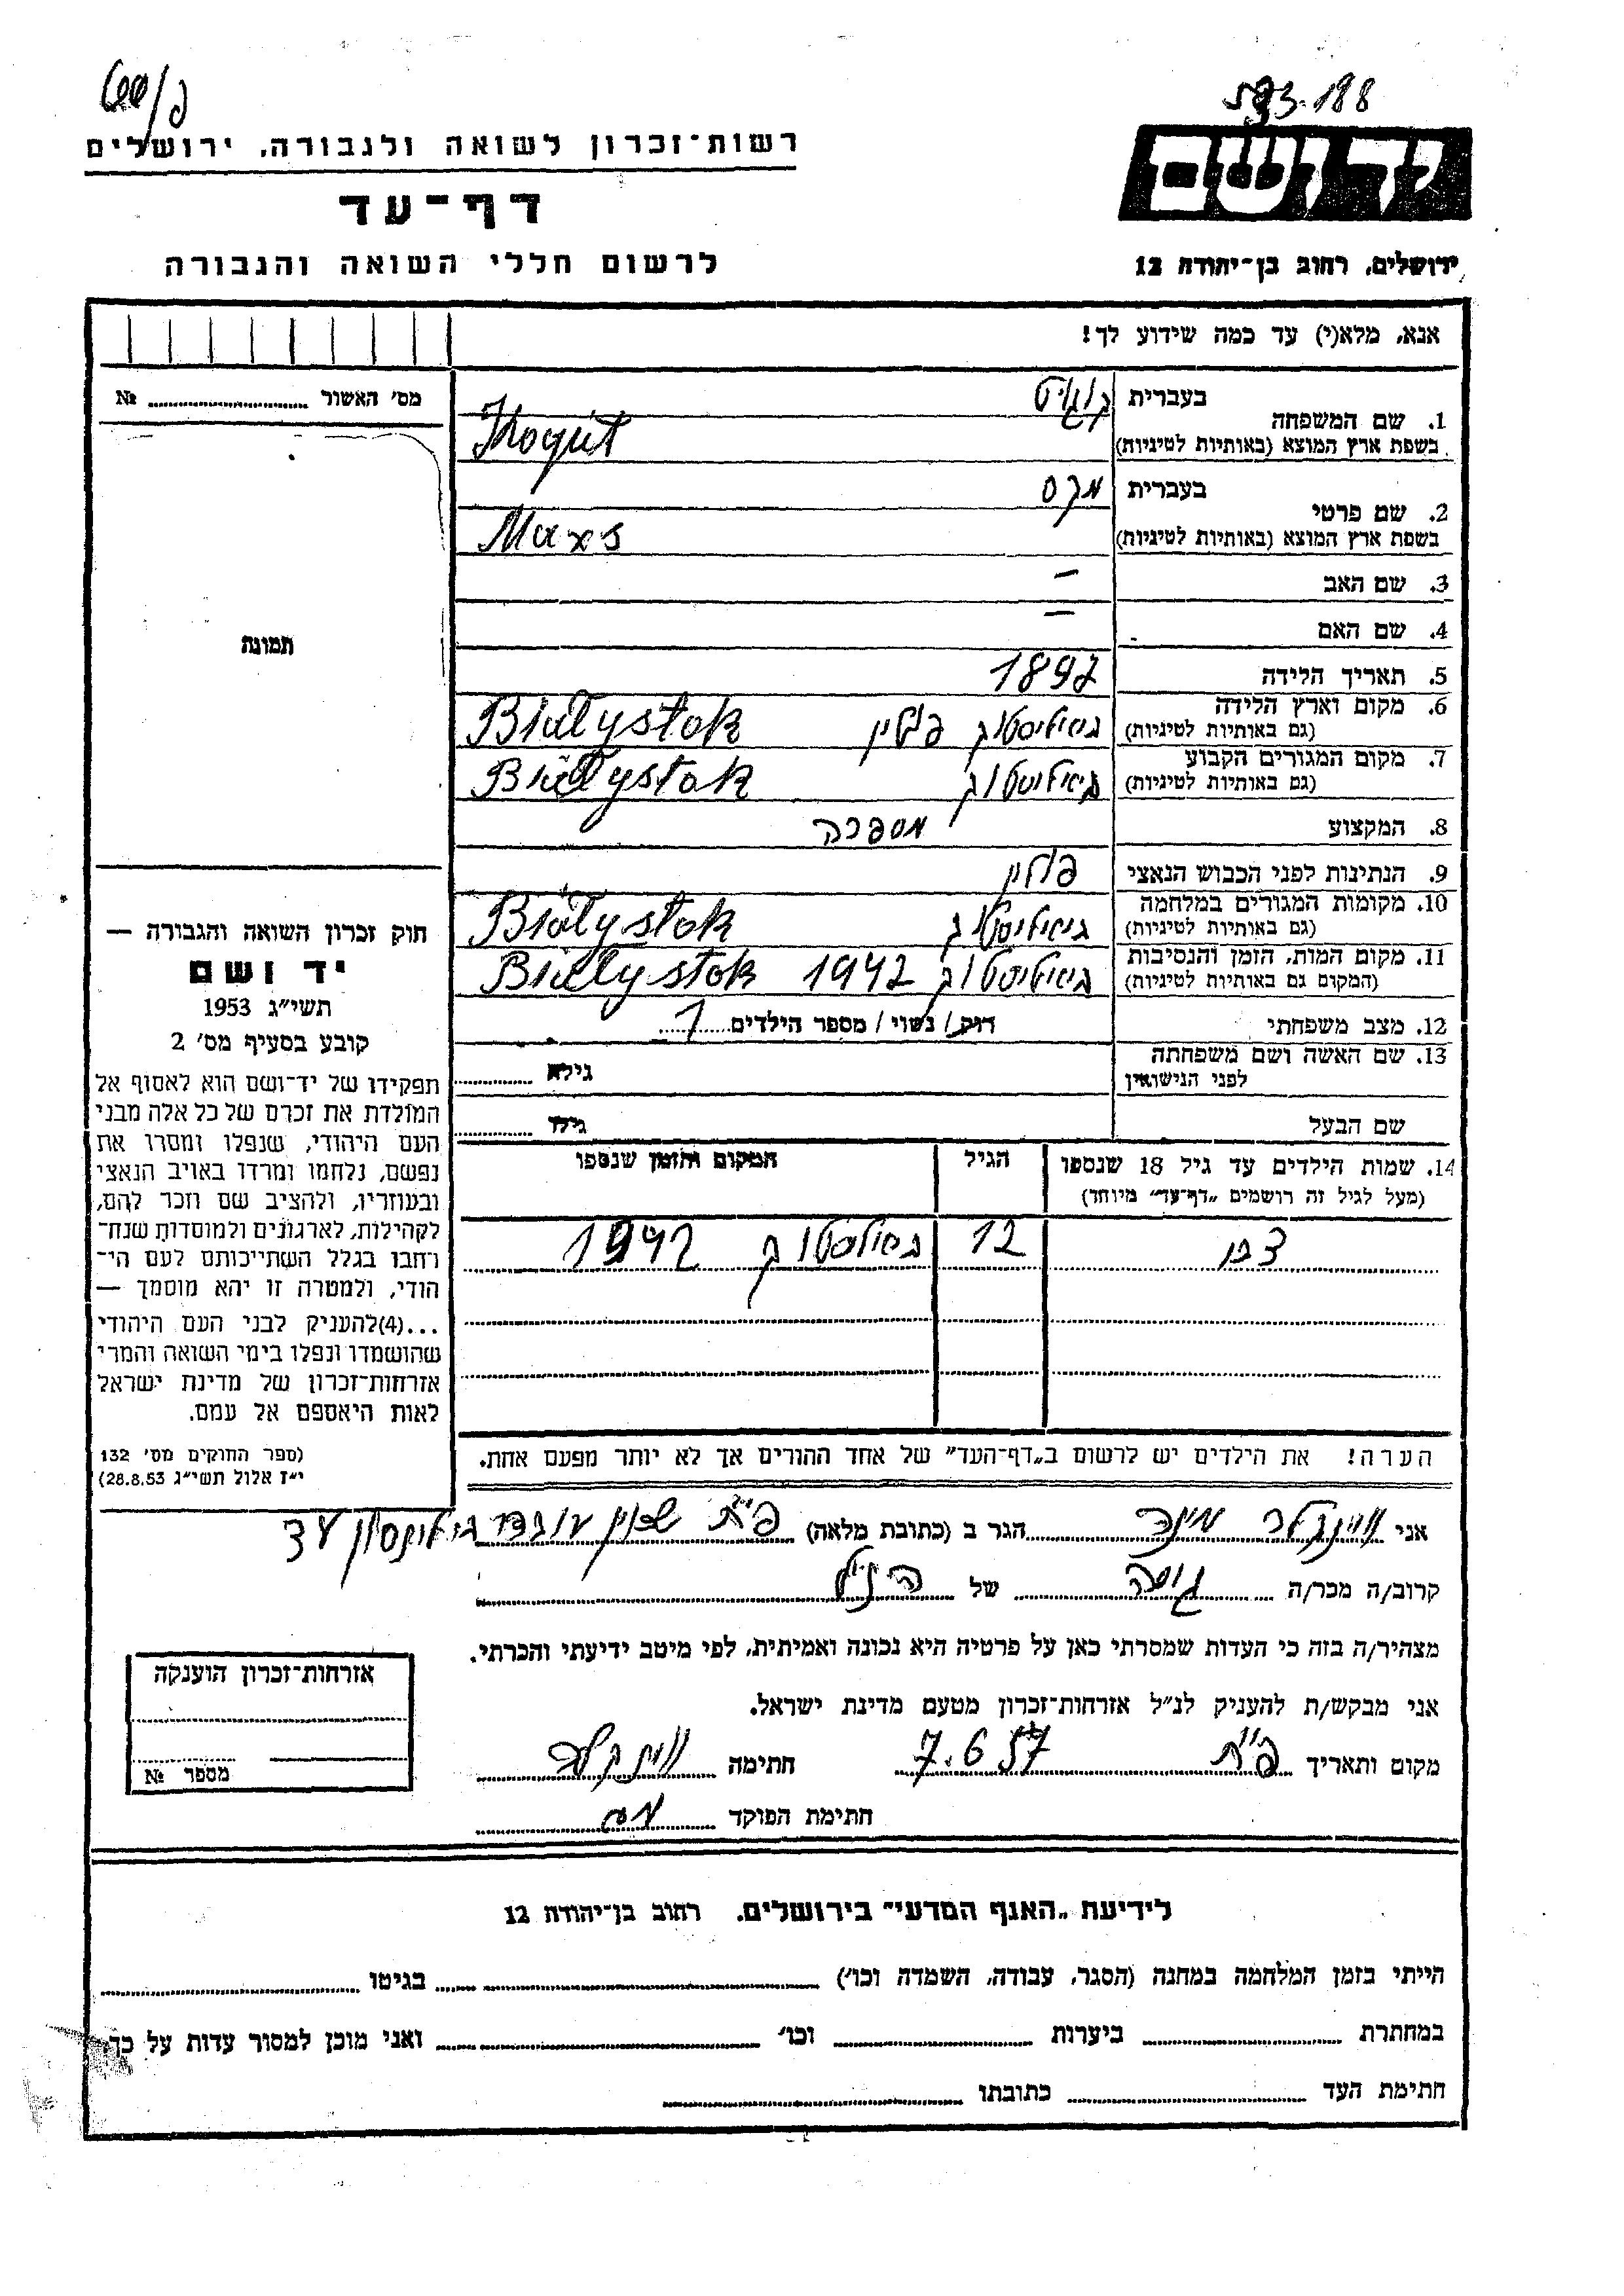 593-188
רשות־זכרון לשואה ולגבורה, ירושלים
יד ושם
דף־עד
לרשום חללי השואה והגבורה
ירושלים, רחוב בן־יהודה 12
אנא, מלא(י) עד כמה שידוע לך!
מס' האשור № ........
1. שם המשפחה בעברית קוגוט
בשפת ארץ המוצא (באותיות לטיניות) Kogut
2. שם פרטי בעברית מקס
בשפת ארץ המוצא (באותיות לטיניות) Maxs
3. שם האב —
4. שם האם —
תמונה
5. תאריך הלידה 1892
6. מקום וארץ הלידה (גם באותיות לטיניות) ביאליסטוק פולין Białystok
7. מקום המגורים הקבוע (גם באותיות לטיניות) ביאליסטוק Białystok
8. המקצוע מספרה
9. הנתינות לפני הכבוש הנאצי פולין
10. מקומות המגורים במלחמה (גם באותיות לטיניות) ביאליסטוק Białystok
11. מקום המות, הזמן והנסיבות (המקום גם באותיות לטיניות) ביאליסטוק 1942 Białystok
12. מצב משפחתי רוק / נשוי / מספר הילדים 1
13. שם האשה ושם משפחתה לפני הנישואין גילא ........
שם הבעל גילו ........
14. שמות הילדים עד גיל 18 שנספו הגיל המקום והזמן שנספו
(מעל לגיל זה רושמים „דף־עד" מיוחד)
12 ביאליסטוק 1942
הערה! את הילדים יש לרשום ב„דף־העד" של אחד ההורים אך לא יותר מפעם אחת.
חוק זכרון השואה והגבורה —
יד ושם
תשי"ג 1953
קובע בסעיף מס' 2
תפקידו של יד־ושם הוא לאסוף אל
המולדת את זכרם של כל אלה מבני
העם היהודי, שנפלו ומסרו את
נפשם, נלחמו ומרדו באויב הנאצי
ובעוזריו, ולהציב שם וזכר להם,
לקהילות, לארגונים ולמוסדות שנח־
רחבו בגלל השתייכותם לעם הי־
הודי, ולמטרה זו יהא מוסמך —
...(4)להעניק לבני העם היהודי
שהושמדו ונפלו בימי השואה והמרי
אזרחות־זכרון של מדינת ישראל
לאות היאספם אל עמם.
(ספר החוקים מס' 132
י"ז אלול תשי"ג 28.8.53)
אני ווינקלר מינה הגר ב (כתובת מלאה) פ"ת
קרוב/ה מכר/ה גיסה של הנ"ל
מצהיר/ה בזה כי העדות שמסרתי כאן על פרטיה היא נכונה ואמיתית, לפי מיטב ידיעתי והכרתי.
אני מבקש/ת להעניק לנ"ל אזרחות־זכרון מטעם מדינת ישראל.
מקום ותאריך פ"ת 7.6.57 חתימה ווינקלר
חתימת הפוקד
אזרחות־זכרון הוענקה
מספר №
לידיעת „האגף המדעי" בירושלים, רחוב בן־יהודה 12
הייתי בזמן המלחמה במחנה (הסגר, עבודה, השמדה וכו') ........ בגיטו ........
במחתרת ........ ביערות ........ וכו' ........ ואני מוכן למסור עדות על כך.
חתימת העד ........ כתובתו ........